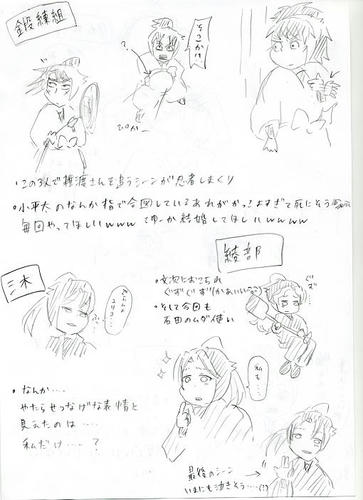 金段練組
?
そこか!?
ぴかー
・この3人で標渡さんを追うシーンが忍者しまくり
・小平太のなんか指で今回しているあれがかっこよすぎて死にそう
毎回やってほしいwww てゆーか結婚してほしいwwww
三木
綾部
・文次におこられ
ぐずぐず(かあいい
・そして今回も
石田のムダ使い
ぐず
私も…
・なんか…
やたらせつなげな表情と
見えたのは…
私だけ…?
最後のシーン
いまにも泣きそう…(!?)